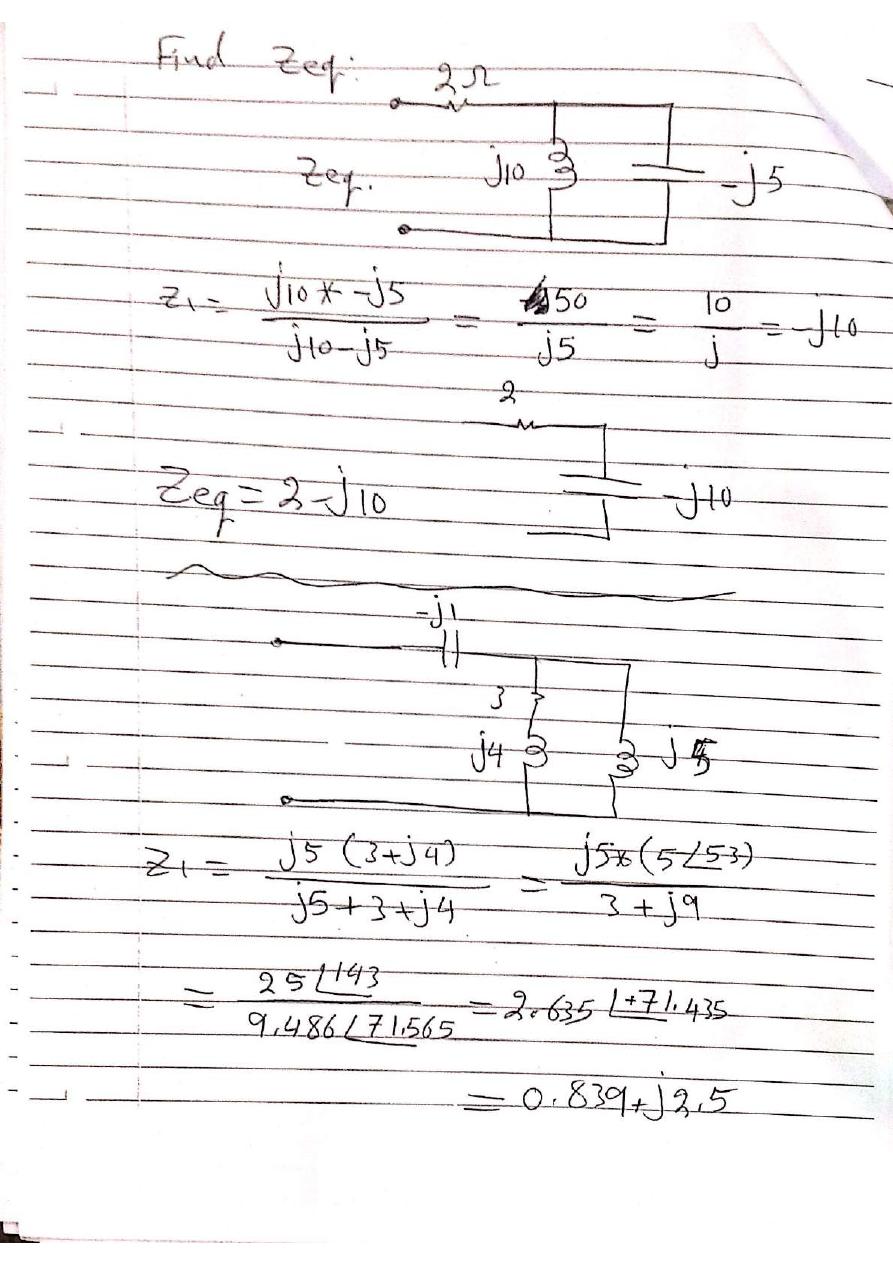 Find Zeq:
2Ω
Zeq. j10 -j5
Z1 = j10 * -j5 / j10-j5 = 50 / j5 = 10 / j = -j10
2
Zeq = 2-j10 -j10
-j1
3
j4 j5
Z1 = j5 (3+j4) / j5+3+j4 = j5*(5∠53) / 3+j9
= 25∠143 / 9.486∠71.565 = 2.635∠+71.435
= 0.839+j2.5